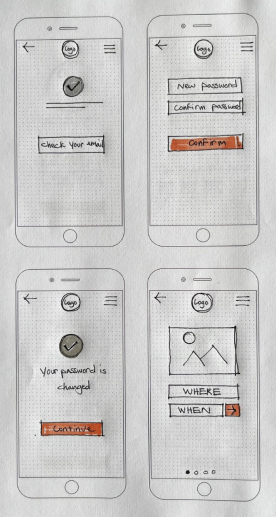 Logo
check your email
Logo
New password
Confirm password
Confirm
Logo
Your password is
changed
Continue
Logo
WHERE
WHEN